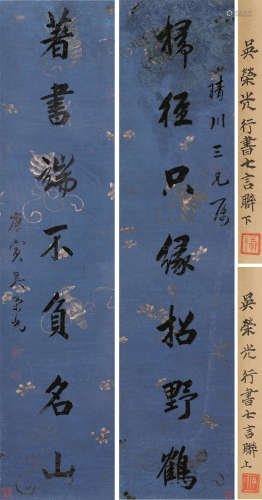 掃徑只緣招野鶴
晴川三兄屬
著書端不負名山
庚寅吳榮光
吳榮光行書七言聯下
吳榮光行書七言聯上